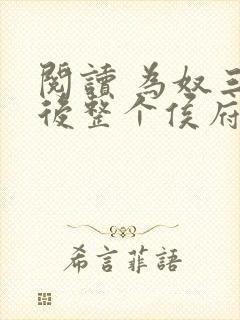 閱讀 為奴三
後整个侯府
希言菲語